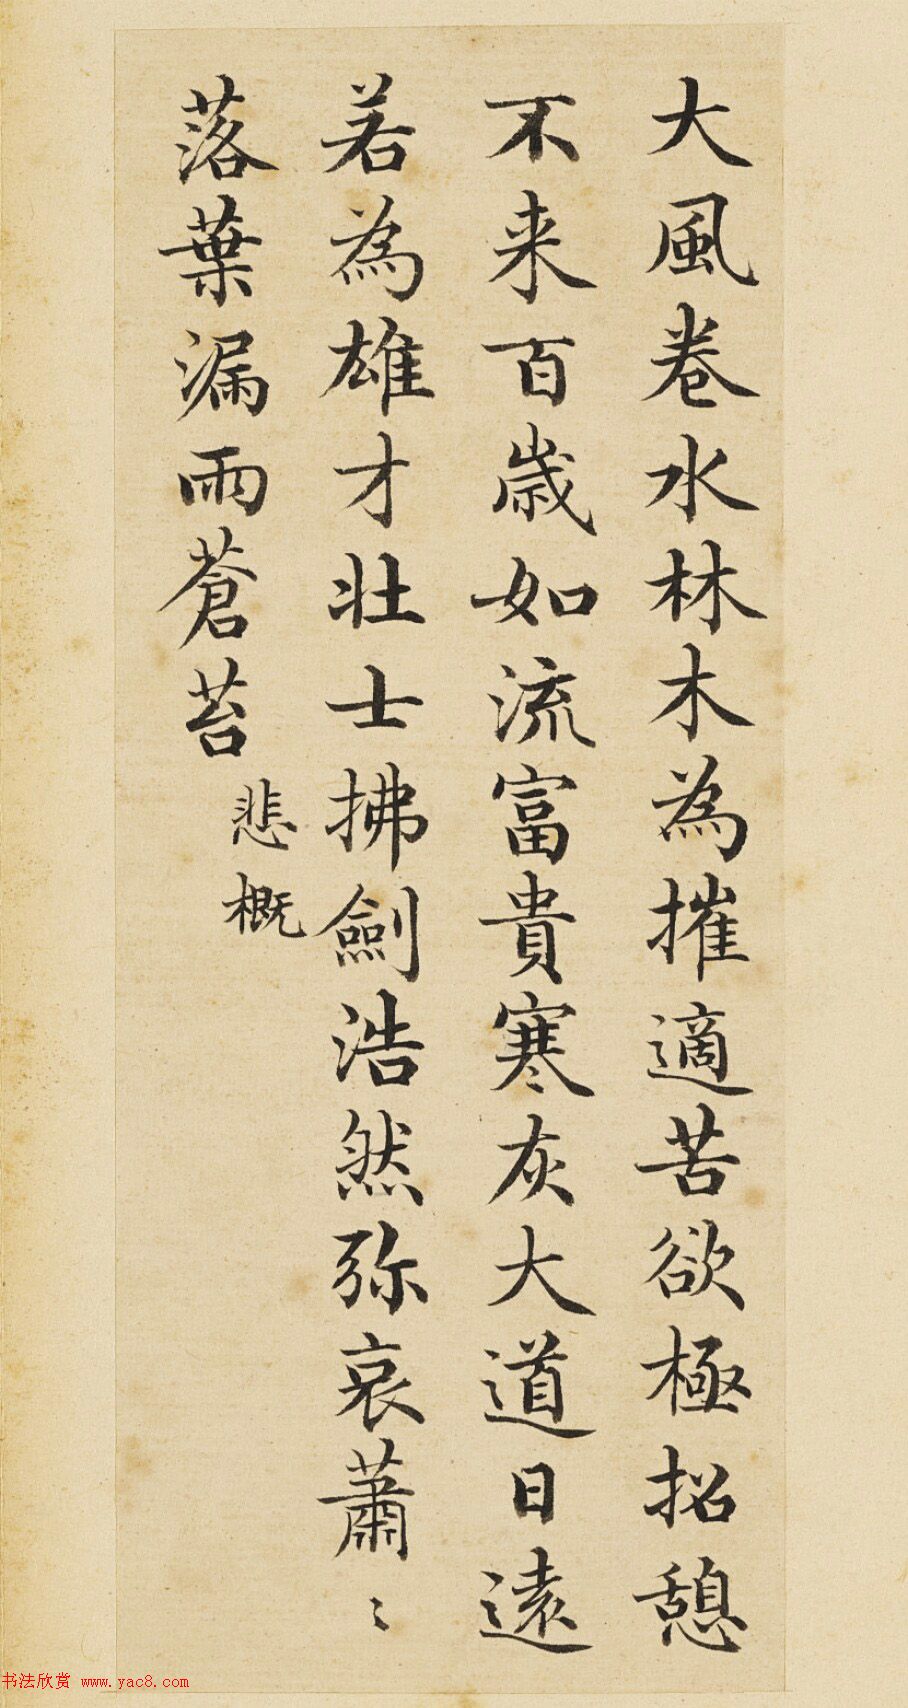 大風卷水林木為摧適苦欲極招憩
不来百歳如流富貴寒灰大道日遠
若為雄才壯士拂劍浩然弥哀蕭〻
落葉漏雨蒼苔
悲概
书法欣赏 www.yac8.com